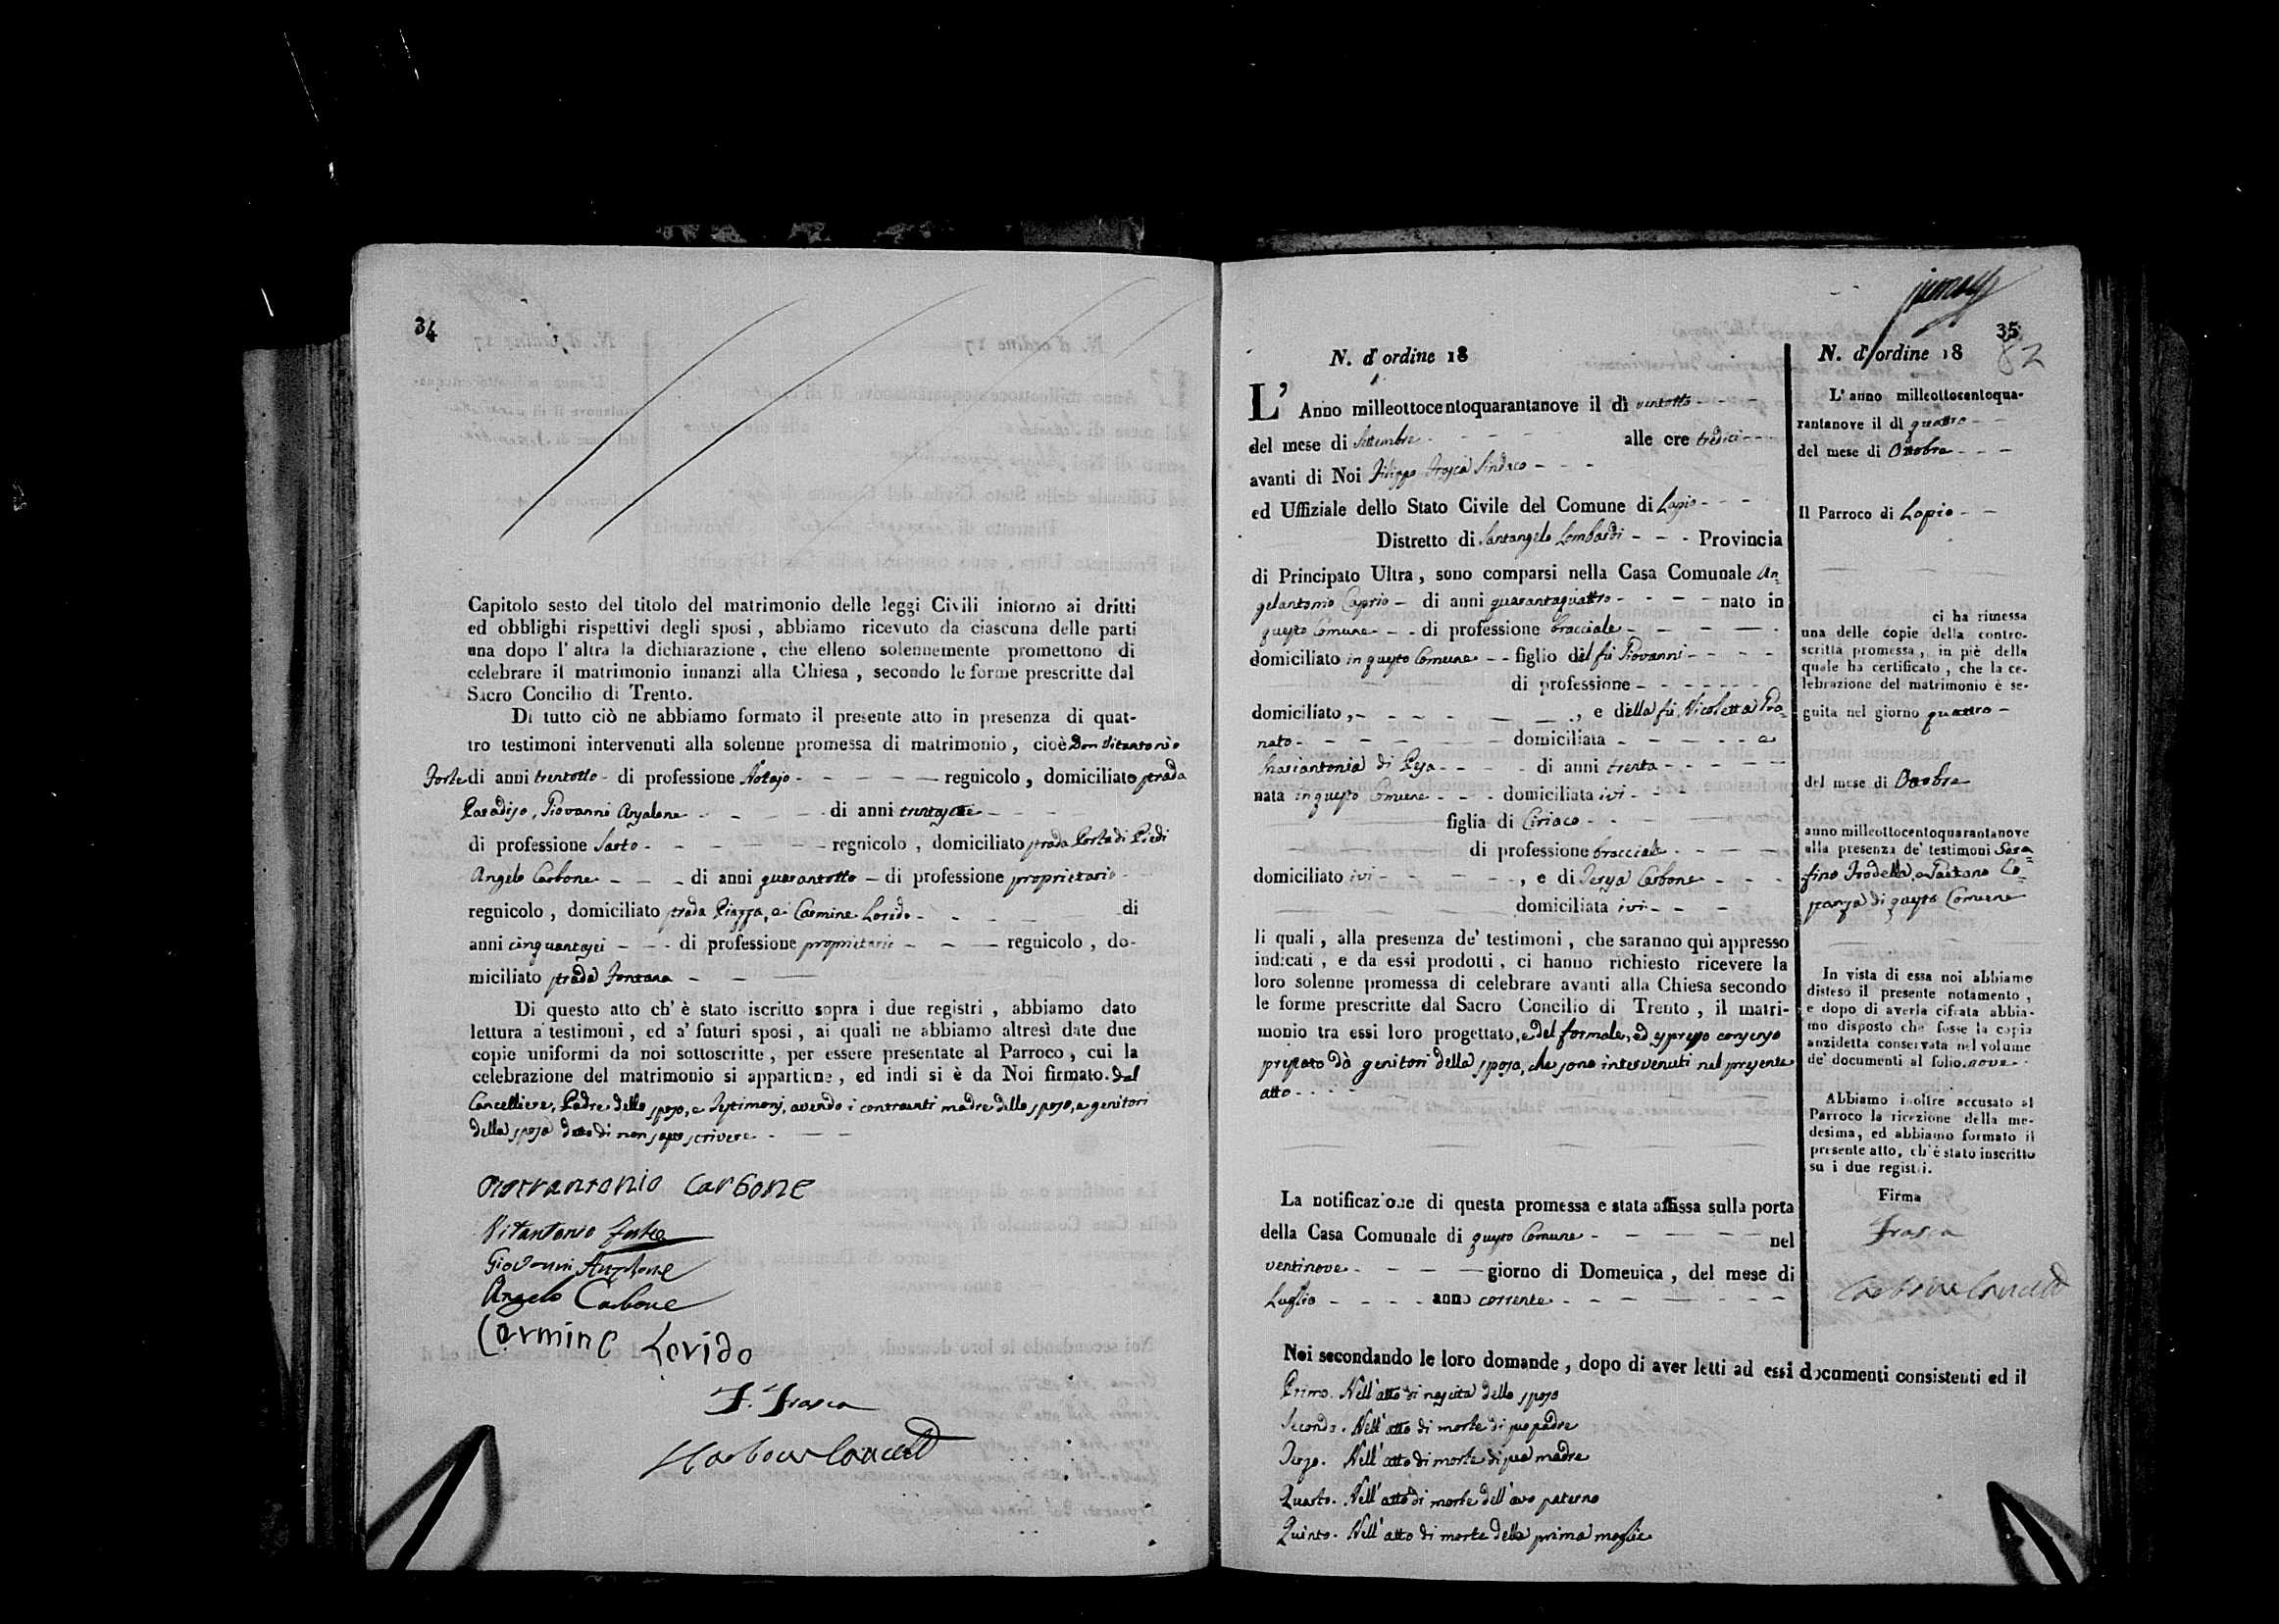 34
Capitolo sesto del titolo del matrimonio delle leggi Civili intorno ai dritti
ed obblighi rispettivi degli sposi , abbiamo ricevuto da ciascuna delle parti
una dopo l' altra la dichiarazione , che elleno solennemente promettono di
celebrare il matrimonio innanzi alla Chiesa , secondo le forme prescritte dal
Sacro Concilio di Trento.
Di tutto ciò ne abbiamo formato il presente atto in presenza di quat-
tro testimoni intervenuti alla solenne promessa di matrimonio , cioè Don Vitantonio
Forte di anni trentotto - di professione Notajo - regnicolo , domiciliato strada
Paradiso, Giovanni Anzalone - di anni
di professione Sarto - regnicolo , domiciliato strada Porta di Piedi
Angelo Carbone - di anni quarantotto - di professione proprietario -
regnicolo , domiciliato strada Piazza, e Carmine Lorido - di
anni cinquantasei - di professione proprietario - regnicolo , do-
miciliato strada Fontana -
Di questo atto ch' è stato iscritto sopra i due registri , abbiamo dato
lettura a' testimoni , ed a' futuri sposi , ai quali ne abbiamo altresì date due
copie uniformi da noi sottoscritte , per essere presentate al Parroco , cui la
celebrazione del matrimonio si appartiene , ed indi si è da Noi firmato. Dal
Cancelliere, Padre dello sposo, e Testimonj, avendo i contraenti madre dello sposo, e genitori
della sposa detto di non saper scrivere -
Carbone
Vitantonio Forte
Giovanni Anzalone
Angelo Carbone
Carmine Lorido
F. Frasca
Carbone Cancell
35
82
N. d' ordine 18
L' Anno milleottocentoquarantanove il dì ventotto -
del mese di Settembre - alle ore tredici -
avanti di Noi Filippo Frasca Sindaco -
ed Uffiziale dello Stato Civile del Comune di Lapio -
Distretto di Santangelo Lombardi - Provincia
di Principato Ultra , sono comparsi nella Casa Comunale An-
gelantonio Caprio - di anni quarantaquattro - nato in
questo Comune - di professione bracciale -
domiciliato in questo Comune - figlio del fu Giovanni -
di professione -
domiciliato , - , e della fu Nicoletta Do-
nato - domiciliata - e
Mariantonia di Pesa - di anni trenta -
nata in questo Comune - domiciliata ivi -
figlia di Ciriaco -
di professione bracciale -
domiciliato ivi - , e di Teresa Carbone -
domiciliata ivi -
li quali , alla presenza de' testimoni , che saranno qui appresso
indicati , e da essi prodotti , ci hanno richiesto ricevere la
loro solenne promessa di celebrare avanti alla Chiesa secondo
le forme prescritte dal Sacro Concilio di Trento , il matri-
monio tra essi loro progettato, e del formale, ed espresso consenso
prestato dà genitori della sposa, che sono intervenuti nel presente
atto -
La notificazione di questa promessa e stata affissa sulla porta
della Casa Comunale di questo Comune - nel
ventinove - giorno di Domenica , del mese di
Luglio - anno corrente -
Noi secondando le loro domande , dopo di aver letti ad essi documenti consistenti ed il
Primo. Nell' atto di nascita dello sposo
Secondo. Nell' atto di morte di suo padre
Terzo. Nell' atto di morte di sua madre
Quarto. Nell' atto di morte dell' avo paterno
Quinto. Nell' atto di morte della prima moglie
N. d' ordine 18
L' anno milleottocentoqua-
rantanove il dì quattro -
del mese di Ottobre -
Il Parroco di Lapio -
ci ha rimessa
una delle copie della contro-
scritta promessa , in piè della
quale ha certificato , che la ce-
lebrazione del matrimonio è se-
guita nel giorno quattro -
del mese di Ottobre
anno milleottocentoquarantanove
alla presenza de' testimoni Sera-
fino Trodella, e Gaetano Co-
stanza di questo Comune
In vista di essa noi abbiamo
disteso il presente notamento ,
e dopo di averla cifrata abbia-
mo disposto che fosse la copia
anzidetta conservata nel volume
de' documenti al folio nove -
Abbiamo inoltre accusato al
Parroco la ricezione della me-
desima, ed abbiamo formato il
presente atto, ch' è stato inscritto
su i due registri.
Firma
Frasca
Carbone Cancell